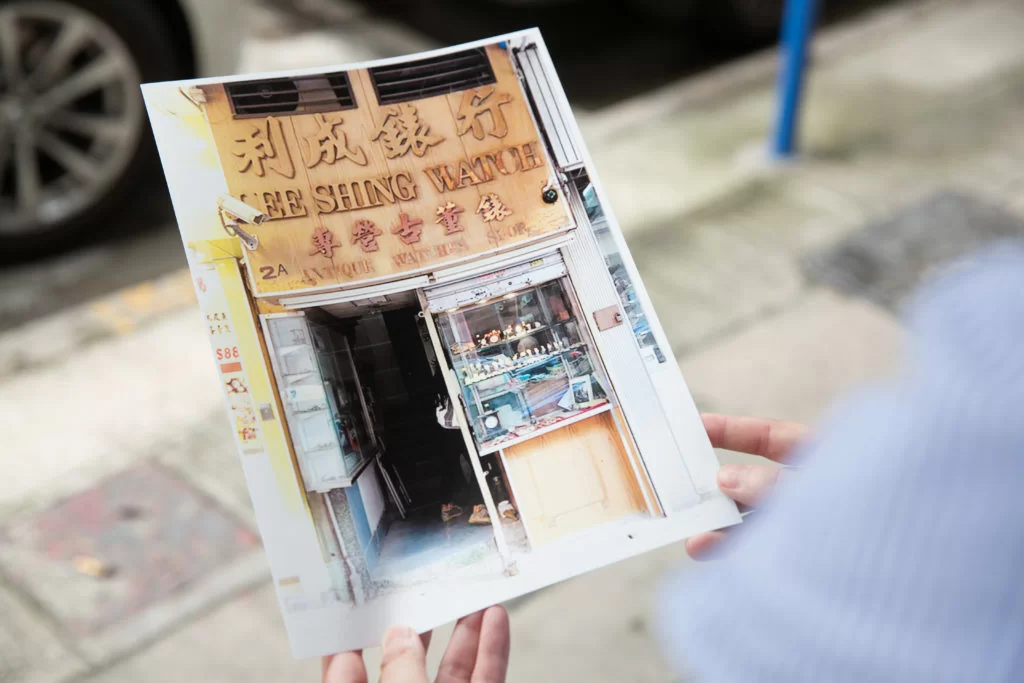 利成錶行
LEE SHING WATCH
專營古董錶
2A ANTIQUE WATCHES SHOP
$88